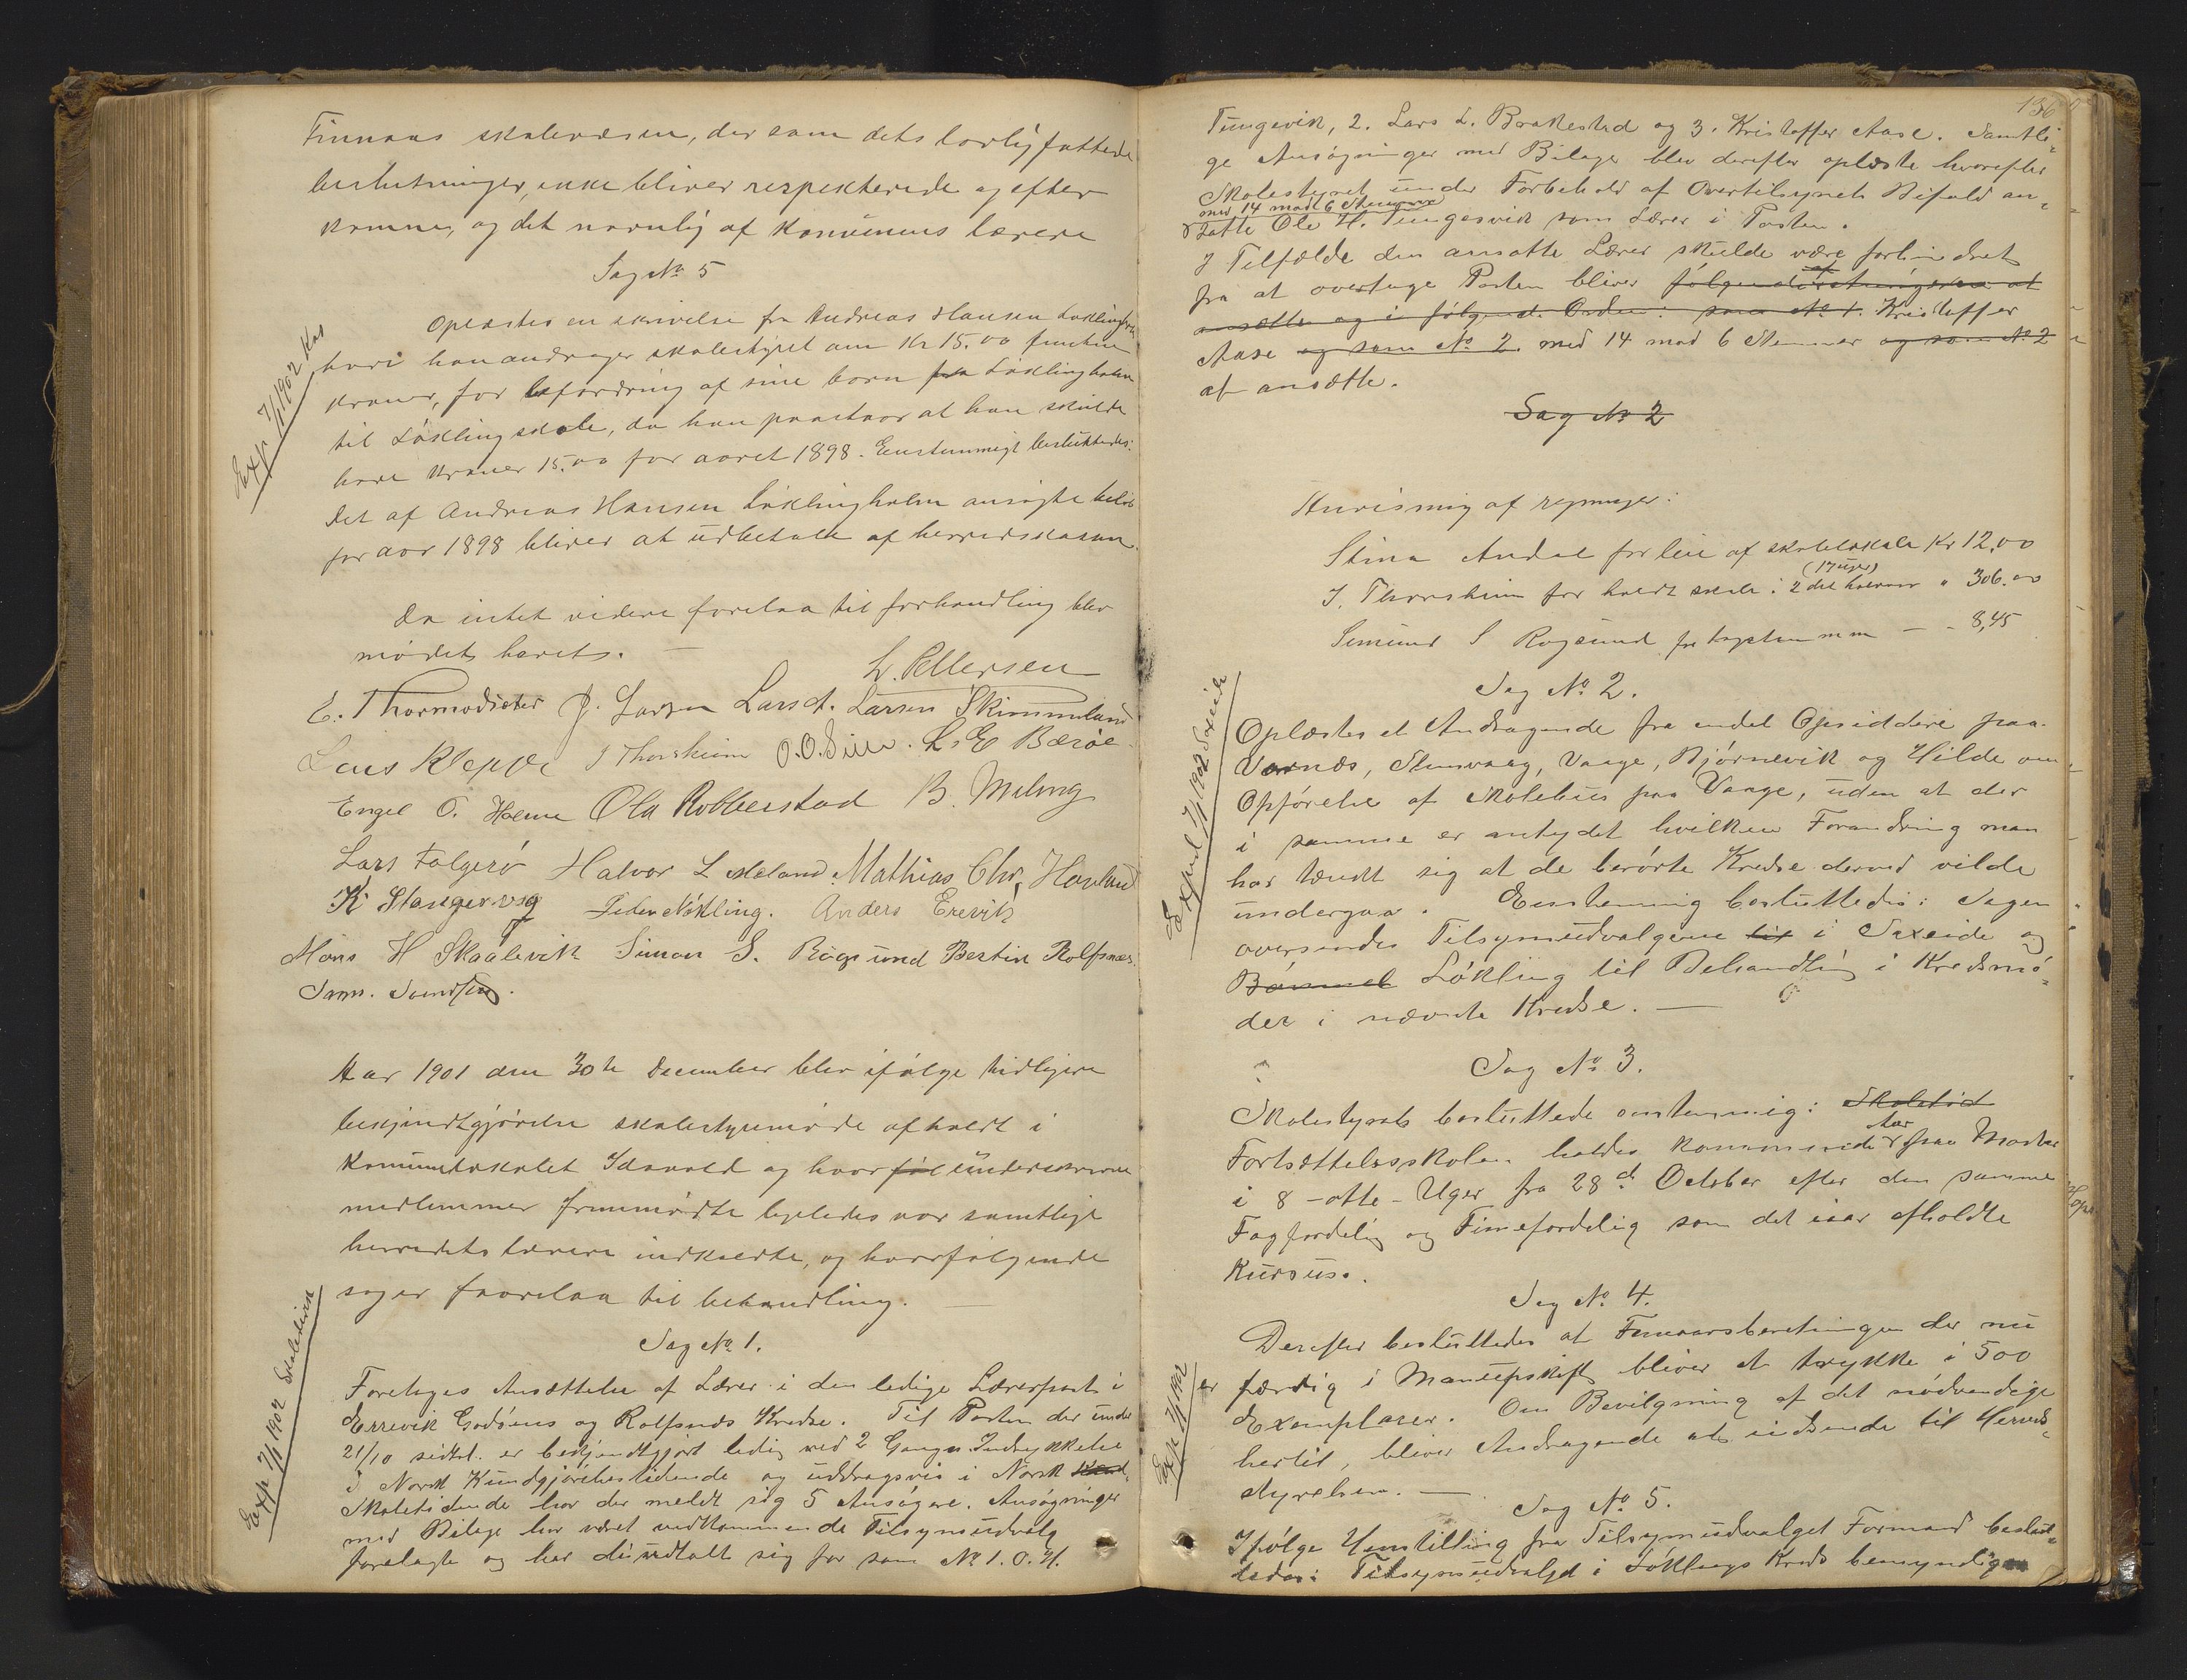 Finnaas skolevæsen, der som dets lovlig fattede
beslutninger, ikke bliver respekterede og efter
komme, og det navnlig af Komünens lærere
Sag No 5
Exp 7/1 1902 Kas
Oplæstes en skrivelse fra Andreas Hansen Løklingholm
hvori han andrager skolestyret om Kr 15.00 femten
kroner, for befordring af sine børn fra Løklingholm
til Løkling skole, da han paastaar at han skulde
have kroner 15.00 for aaret 1898. Enstemmigt besluttedes:
Det af Andreas Hansen Løklingholm ansøgte beløb
for aar 1898 bliver at udbetale af herredskassen.
Da intet videre forelaa til forhandling blev
mødet hævet. —
L. Pettersen
E. Thormodsæter J. Larsen Lars A. Larsen Skimmeland
Lars Kleppe J Thorsheim O.O. Siller. L. E Bærøe
Engel O. Holme Ola Robberstad B. Meling
Lars Folgerø Halvor L Meland. Mathias Chr. Havland
K Stangervåg Peder Nøkling. Anders Erevik
Mons H Skaalevik Simon S. Røgsund Bertin Rolfsnæs.
Sam. Svendsen.
Aar 1901 den 30te December blev ifølge tidligere
bekjendtgjørelse skolestyremøde afholdt i
Komünelokalet Idavold og hvor føl ünderskrevne
medlemmer fremmødte ligeledes var samtlige
herredets lærere indkaldte, og hvor følgende
sager forelaa til behandling. —
Sag No 1.
Exp 7/1 1902 Skoledirek
Foretoges Ansættelse af Lærer i den ledige Lærerpost i
Errevik Godøens og Rolfsnæs Kredse. Til Posten der ünder
21/10 sidstl. er bekjendtgjort ledig ved 2 Ganges Indrykkelse
i Norsk Kundgjørelsestidende og uddragsvis i Norsk Kund-
Skoletidende har der meldt sig 5 Ansøgere. Ansøgninger
med Bilage har været vedkommende Tilsynsudvalg
forelagte og har de udtalt sig for som No 1. O. H.
136
Tungevik, 2. Lars L. Brakestad og 3. Kristoffer Aase. Samtli-
ge Ansøgninger med Bilage blev derefter oplæste hvorefter
Skolestyret under Forbehold af Overtilsynets Bifald an-
med 14 mod 6 Stemmer
satte Ole H. Tungesvik som Lærer i Posten.
I Tilfælde den ansatte Lærer skulde være forhindret
fra at overtage Posten bliver følgende af Ansøgerne at
ansætte og i følgende Orden: som No 1. Kristoffer
Aase og som No 2. med 14 mod 6 Stemmer og som No 2
at ansætte.
Sag No 2
Anvisning af regninger:
Stina Andal for leie af skolelokale Kr 12,00
(17 uger)
J. Thorsheim for holdt skole i 2det halvaar " 306.00
Simund S Røgsund for kapsten m m — - 8,45
Sag No. 2.
Exped 7/1 1902 Saxeide
Oplæstes et Andragende fra endel Opsiddere paa
Vornæs, Stensvaag, Vaage, Bjørnevik og Hilde om
Opførelse af Skolehus paa Vaage, uden at der
i samme er antydet hvilken Forandring man
har tænkt sig at de berørte Kredse derved vilde
undergaa. Eenstemmig besluttedes: Sagen
oversendes Tilsynsudvalgene til i Saxeide og
Bømmel Løkling til Behandling i Kredsmø-
der i nævnte Kredse. —
Sag No. 3.
Skolestyret besluttede enstemmig: Skoletid
Fortsættelsesskolen holdes kommende Aar paa Moster
i 8 – otte – Uger fra 28de October efter den samme
Fagfordeling og Timefordeling som det iaar afholdte
Kursus.
Sag No. 4.
Exp 7/1 1902
Derefter besluttedes at Femaarsberetningen der nu
er færdig i Manuskrift bliver at trykke i 500
Exemplarer. Om Bevilgning af det nødvendige
hertil, bliver Andragende at indsende til Herreds-
styrelsen. —
Sag No. 5.
Ifølge Henstilling fra Tilsynsudvalget Formand beslut-
tedes: Tilsynsudvalget i Løklings Kreds bemyndiges